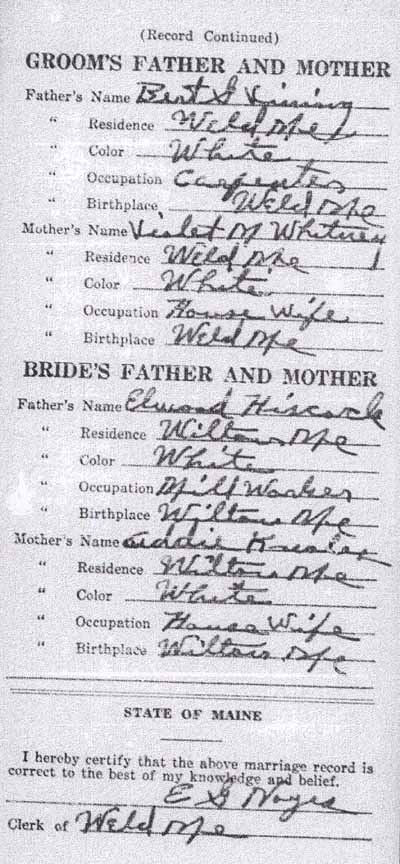 (Record Continued)
GROOM'S FATHER AND MOTHER
Father's Name Bert S Vining
" Residence Weld Me
" Color White
" Occupation Carpenter
" Birthplace Weld Me
Mother's Name Violet M Whitney
" Residence Weld Me
" Color White
" Occupation House Wife
" Birthplace Weld Me
BRIDE'S FATHER AND MOTHER
Father's Name Elwood Hiscock
" Residence Wilton Me
" Color White
" Occupation Mill Worker
" Birthplace Wilton Me
Mother's Name Addie
" Residence Wilton Me
" Color White
" Occupation House Wife
" Birthplace Wilton Me
STATE OF MAINE
I hereby certify that the above marriage record is
correct to the best of my knowledge and belief.
E S Noyes
Clerk of Weld Me